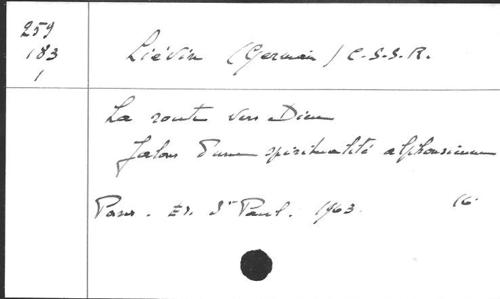 259
183
1
Liévin (Germain) C.S.S.R.
La route vers Dieu
Jalons d'une spiritualité alphonsienne
Paris. Ed. St Paul. 1963. 16